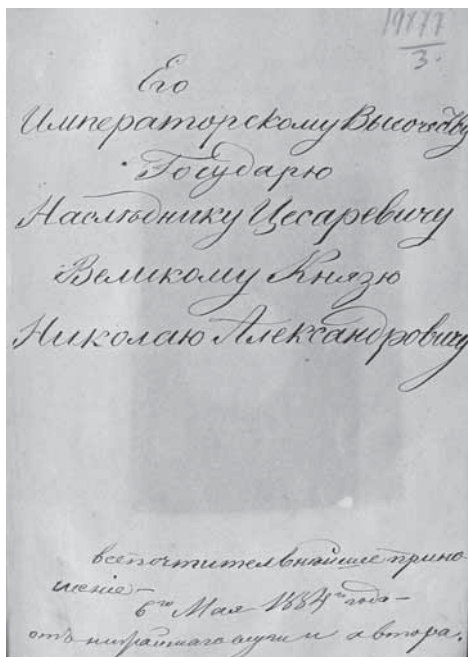 19777
3.
Его
Императорскому Высочеству
Государю
Наслѣднику Цесаревичу
Великому Князю
Николаю Александровичу
всепочтительнѣйшее прино-
шеніе
6го Мая 1884го года —
отъ автора.